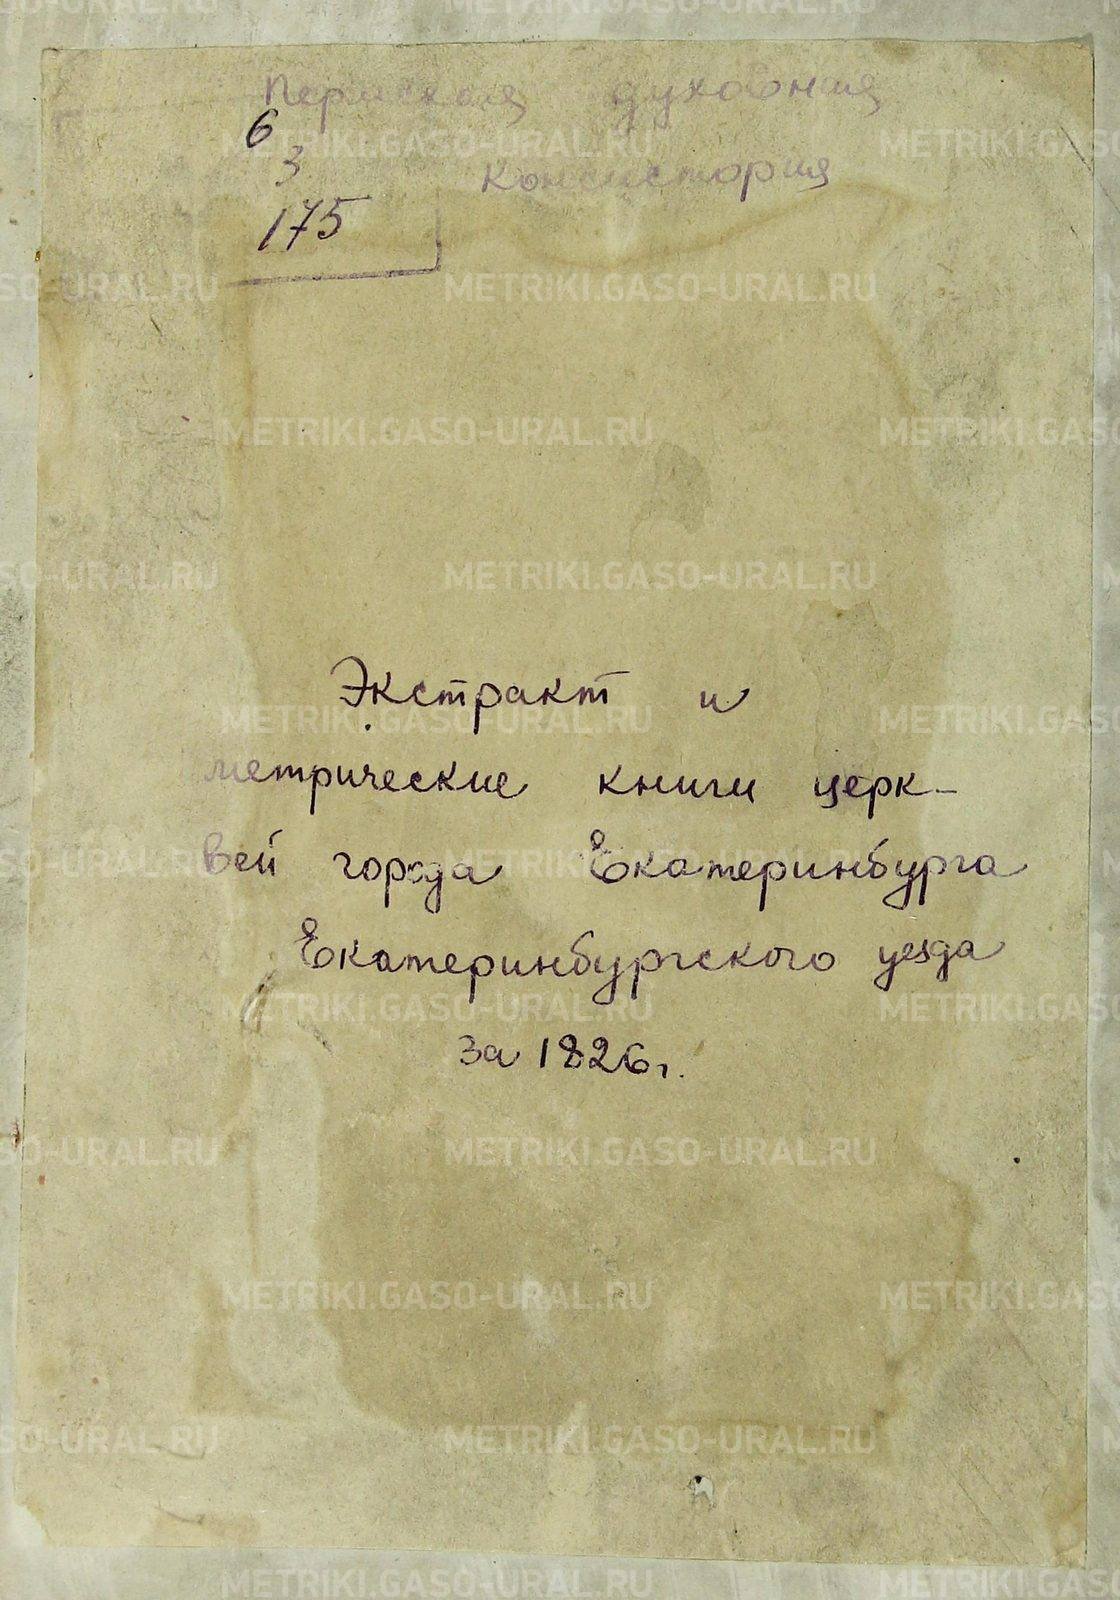 Пермская духовная
6
3
консистория
175
Экстракт и
метрические книги церк-
вей города Екатеринбурга
Екатеринбургского уезда
за 1826г.
METRIKI.GASO-URAL.RU